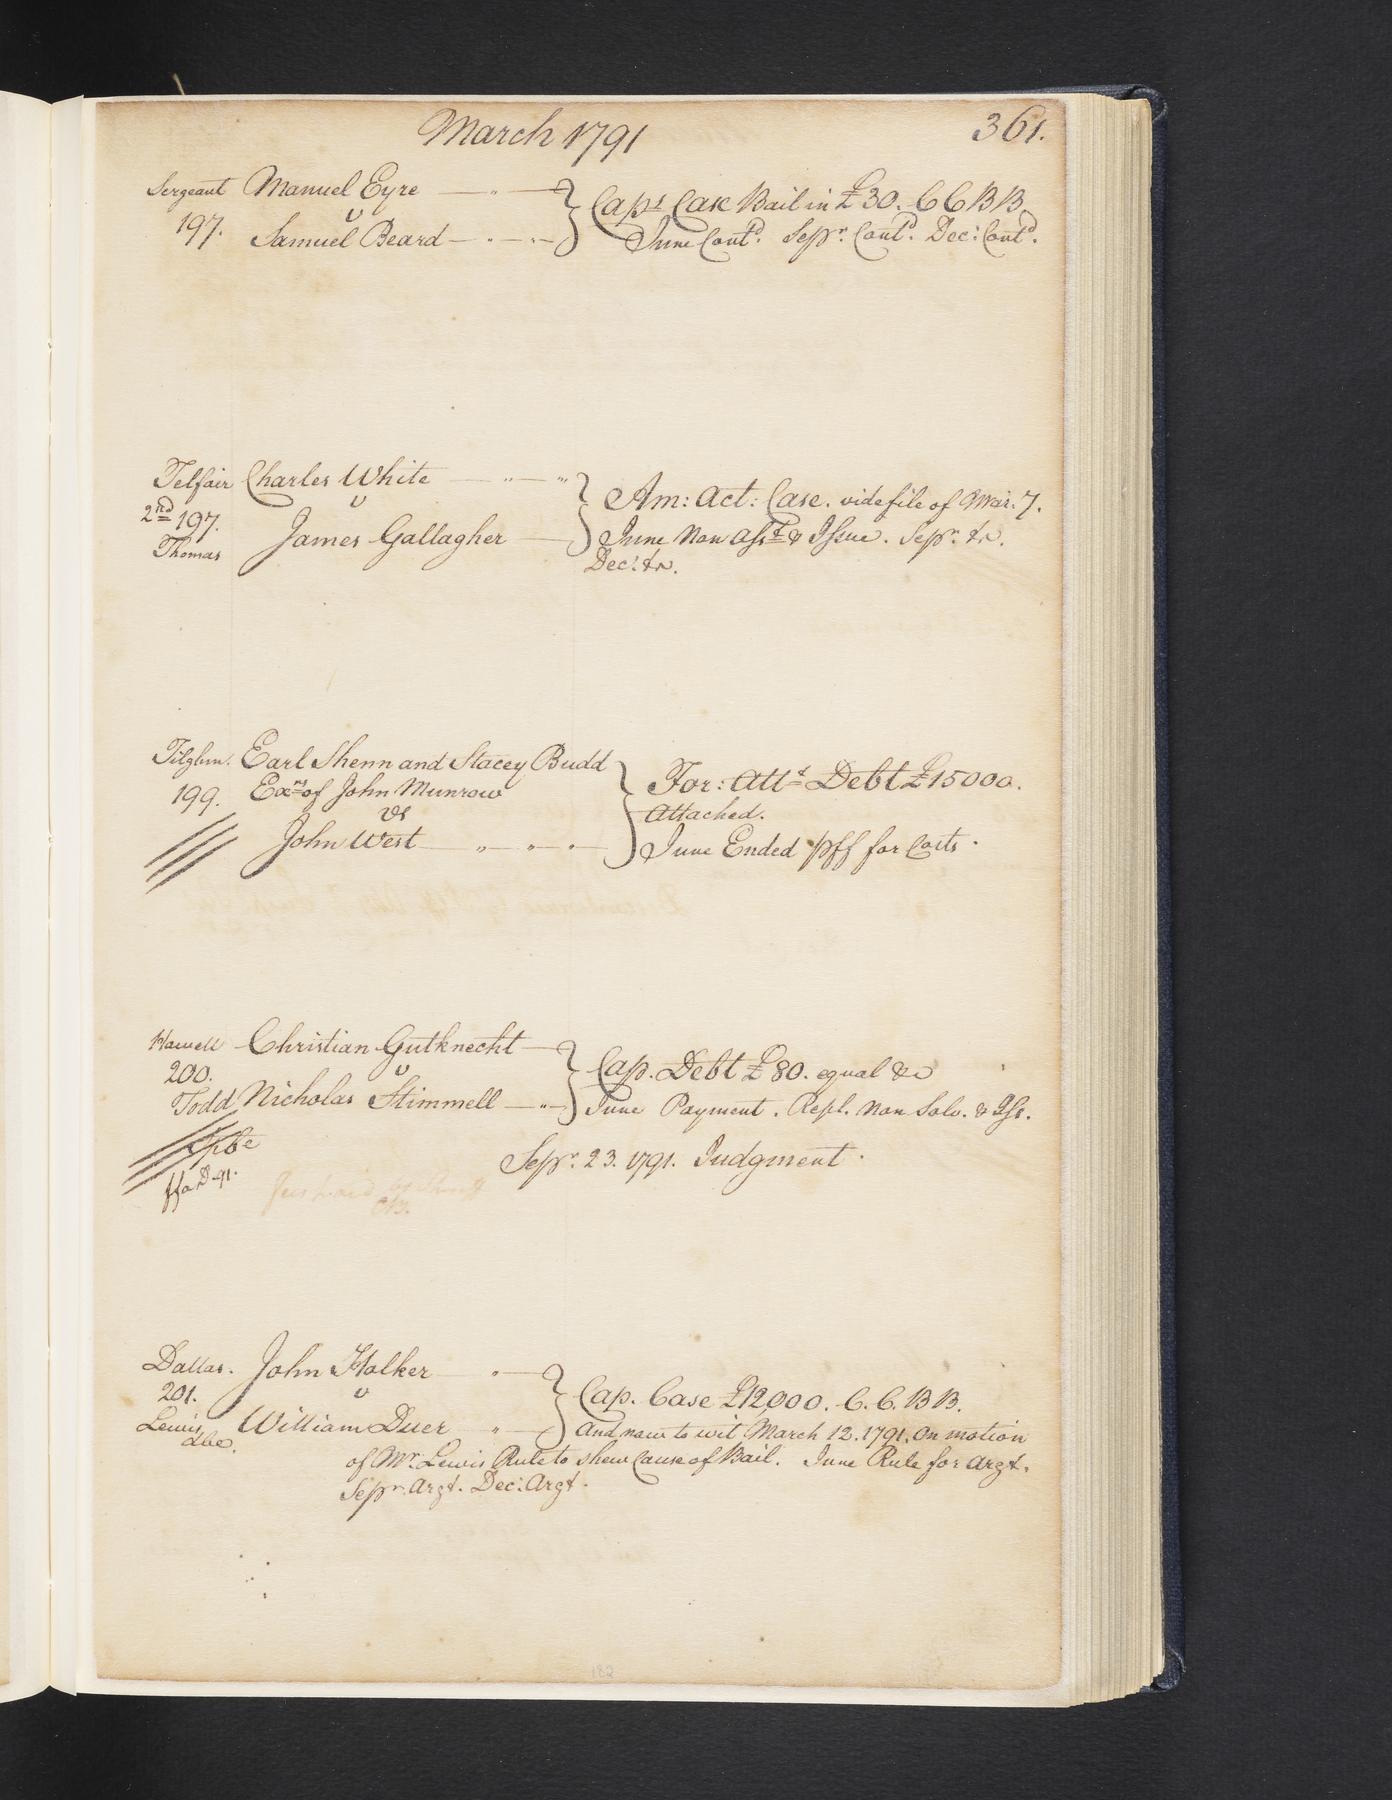 March 1791
361.
Sergeant Manuel Eyre
v
197. Samuel Beard
Caps Case Bail in £30. C C B B
June Contd. Sepr. Contd. Dec: Contd.
Telfair Charles White
v
2nd 197.
Thomas James Gallagher
Am: Act: Case. vide file of Mar. 7.
June Non Asst & Issue. Sepr.
Dec:
Tilghm. Earl Shenn and Stacey Budd
199. Exrs of John Munrow
vs
John West
For: Attt Debt £15000.
Attached.
June Ended pff for Costs.
Howell Christian Gutknecht
200. v
Todd Nicholas Stimmell
Cap. Debt £80. equal &c
June Payment. Repl. Non Solv. & Iss.
Sepr. 23. 1791. Judgment.
ffa D 91.
Dallas. John Holker
201. v
Lewis William Duer
dbe.
Cap. Case £12,000. C. C. B B.
And now to wit March 12. 1791. On motion
of Mr. Lewis Rule to shew Cause of Bail. June Rule for Argt.
Sepr. Argt. Dec: Argt.
182